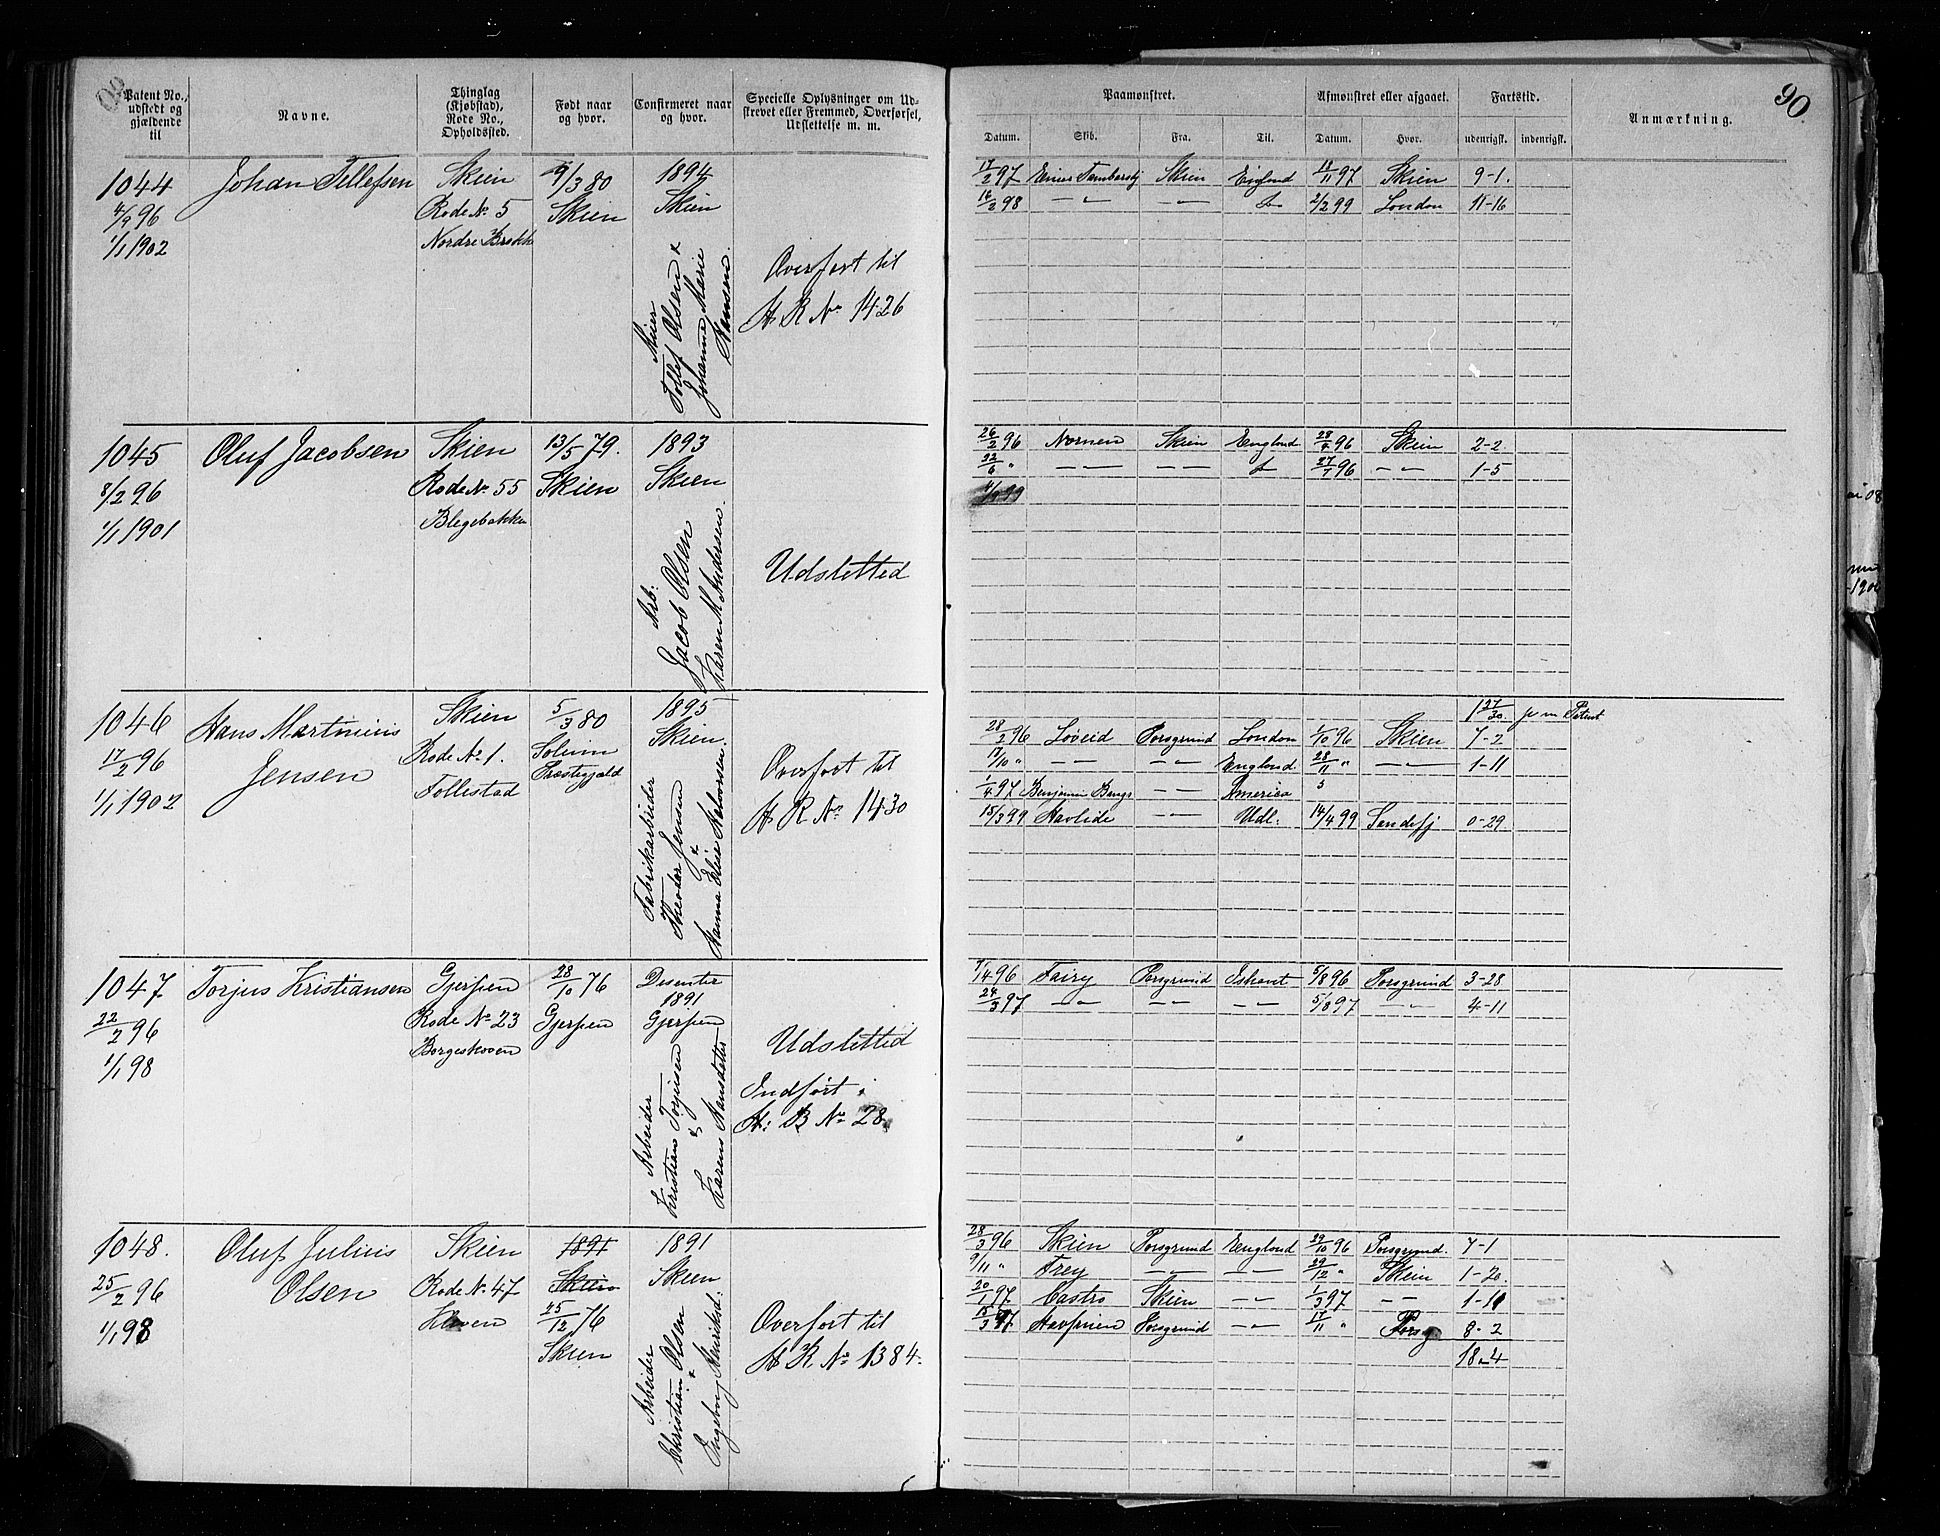 90
Patent No., udstedt og gjældende til
Navne.
Thinglag (Kjøbstad), Rode No., Opholdssted.
Født naar og hvor.
Confirmeret naar og hvor.
Specielle Oplysninger om Udstrevet eller Fremmed, Overførsel, Udslettelse m. m.
Paamønstret.
Afmønstret eller afgaaet.
Fartstid.
Anmærkning.
Datum. Skib. Fra. Til. Datum. Hvor. udenrigst. indenrigst.
1044 Johan Tellefsen Skien 9/3 80 1894
4/9 96 Rode No. 5 Skien Skien
1/1 1902 Nordre
Tollef Olsen &
Johanne Marie
Hansen
Overført til
H R No 1426
17/2 97 Skien England 18/11 97 Skien 9-1.
16/2 98 — — 2/2 99 London 11-16
1045 Oluf Jacobsen Skien 13/5 79. 1893
8/2 96 Rode No. 55 Skien Skien
1/1 1901 Blegebakken
Arb:
Jacob Olsen
Karen M. Andersen.
Udsletted
26/2 96 Nornen Skien England 28/4 96 Skien 2-2.
22/6 " — — 27/7 96 — 1-5
1046 Hans Martinius Skien 5/3 80 1895
17/2 96 Jensen Rode No. 1. Solum Skien.
1/1 1902 Follestad Præstegjæld
Fabrikarbeider
Theodor Jensen
&
Hanna Elise Halvorsen
Overført til
H R No 1430
1 27/30 p m Patent
28/2 96 Løveid Porsgrund London 1/10 96 Skien 7-2
17/10 " — — England. 28/11 " — 1-11
1/4 97 Benjamin Bangs — America
15/3 99 Havlide — Udl. 14/4 99 Sandefj 0-29
1047 Torjus Kristiansen Gjerpen 28/10 76 Disenter 1891
22/2 96 Rode No 23 Gjerpen Gjerpen
1/1 98 Borgeskoven
Arbeider
Kristian Torjusen
&
Karen Hansdatter
Udslettet
Indført i
H: B No 28
9/4 96 Fairy Porsgrund Ishavet 5/8 96 Porsgrund 3-28
24/3 97 — — — 5/8 97 — 4-11
1048. Oluf Julius Skien 1891 1891
25/2 96 Olsen Rode No. 47 Skien Skien
1/1 98 25/12 76
Skien
Arbeider
Christian Olsen
&
Ingeborg Henriksd.
Overført til
H R No 1384.
28/3 96 Skien Porsgrund England 29/10 96 Porsgrund. 7-1
9/11 " Frey — — 29/12 " Skien 1-20
20/1 97 Castro Skien — 1/3 97 — 1-11
15/3 97 Havfruen Porsgrund — 17/11 " Porsg. 8-2
18-4